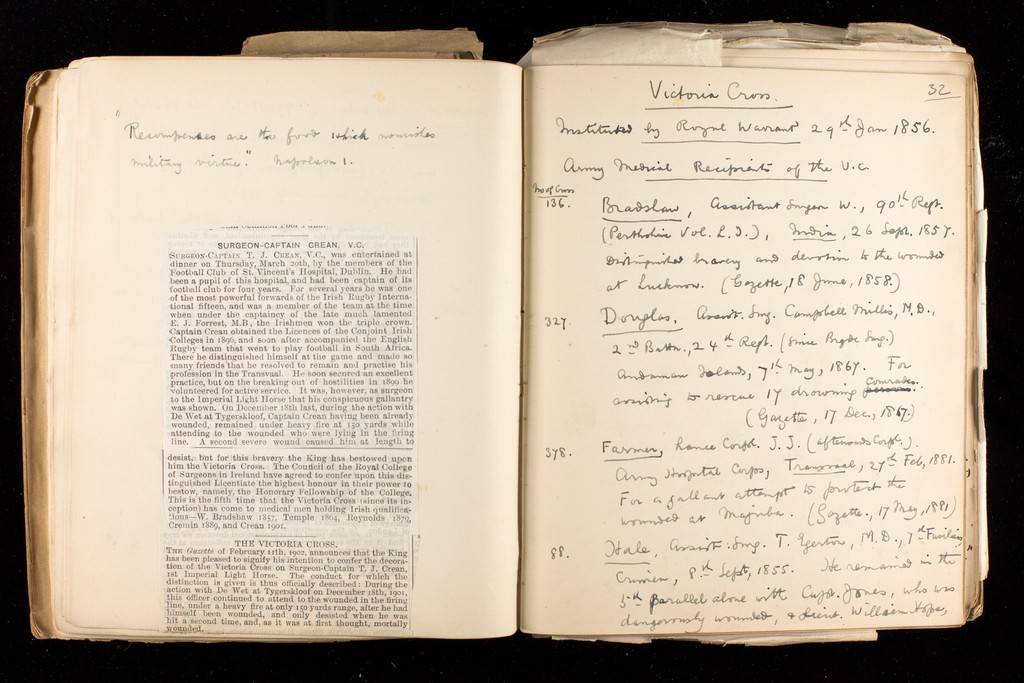 "Recompenses are the food which nourishes
military virtue." Napoleon 1.
SURGEON-CAPTAIN CREAN, V.C.
SURGEON-CAPTAIN T. J. CREAN, V.C., was entertained at
dinner on Thursday, March 20th, by the members of the
Football Club of St. Vincent's Hospital, Dublin. He had
been a pupil of this hospital, and had been captain of its
football club for four years. For several years he was one
of the most powerful forwards of the Irish Rugby Interna-
tional fifteen, and was a member of the team at the time
when under the captaincy of the late much lamented
E. J. Forrest, M.B., the Irishmen won the triple crown.
Captain Crean obtained the Licences of the Conjoint Irish
Colleges in 1896, and soon after accompanied the English
Rugby team that went to play football in South Africa.
There he distinguished himself at the game and made so
many friends that he resolved to remain and practise his
profession in the Transvaal. He soon secured an excellent
practice, but on the breaking out of hostilities in 1899 he
volunteered for active service. It was, however, as surgeon
to the Imperial Light Horse that his conspicuous gallantry
was shown. On December 18th last, during the action with
De Wet at Tygerskloof, Captain Crean having been already
wounded, remained under heavy fire at 150 yards while
attending to the wounded who were lying in the firing
line. A second severe wound caused him at length to
desist, but for this bravery the King has bestowed upon
him the Victoria Cross. The Council of the Royal College
of Surgeons in Ireland have agreed to confer upon this dis-
tinguished Licentiate the highest honour in their power to
bestow, namely, the Honorary Fellowship of the College.
This is the fifth time that the Victoria Cross (since its in-
ception) has come to medical men holding Irish qualifica-
tions—W. Bradshaw 1857, Temple 1864, Reynolds 1879,
Cremin 1889, and Crean 1901.
THE VICTORIA CROSS.
THE Gazette of February 11th, 1902, announces that the King
has been pleased to signify his intention to confer the decora-
tion of the Victoria Cross on Surgeon-Captain T. J. Crean,
1st Imperial Light Horse. The conduct for which the
distinction is given is thus officially described: During the
action with De Wet at Tygerskloof on December 18th, 1901,
this officer continued to attend to the wounded in the firing
line, under a heavy fire at only 150 yards range, after he had
himself been wounded, and only desisted when he was
hit a second time, and, as it was at first thought, mortally
wounded.
32
Victoria Cross.
Instituted by Royal Warrant 29th Jan 1856.
Army Medical Recipients of the V.C.
No of Cross
136. Bradshaw, Assistant Surgeon W., 90th Regt.
(Perthshire Vol. L.I.), India, 26 Sept. 1857.
Distinguished bravery and devotion to the wounded
at Lucknow. (Gazette, 18 June, 1858.)
327. Douglas, Assist. Surg. Campbell Millis, M.D.,
2nd Battn., 24th Regt. (since Brigde Surg.)
Andaman Islands, 7th May, 1867. For
assisting to rescue 17 drowning persons. Comrades.
(Gazette, 17 Dec, 1867.)
378. Farmer, Lance Corpl. J.J. (afterwards Corpl.).
Army Hospital Corps, Transvaal, 27th Feb, 1881.
For a gallant attempt to protect the
wounded at Majuba. (Gazette, 17 May, 1881)
88. Hale, Assist. Surg. T. Egerton, M.D., 7th Fusiliers
Crimea, 8th Sept, 1855. He remained in the
5th parallel alone with Capt. Jones, who was
dangerously wounded, & Lieut. William Hope,